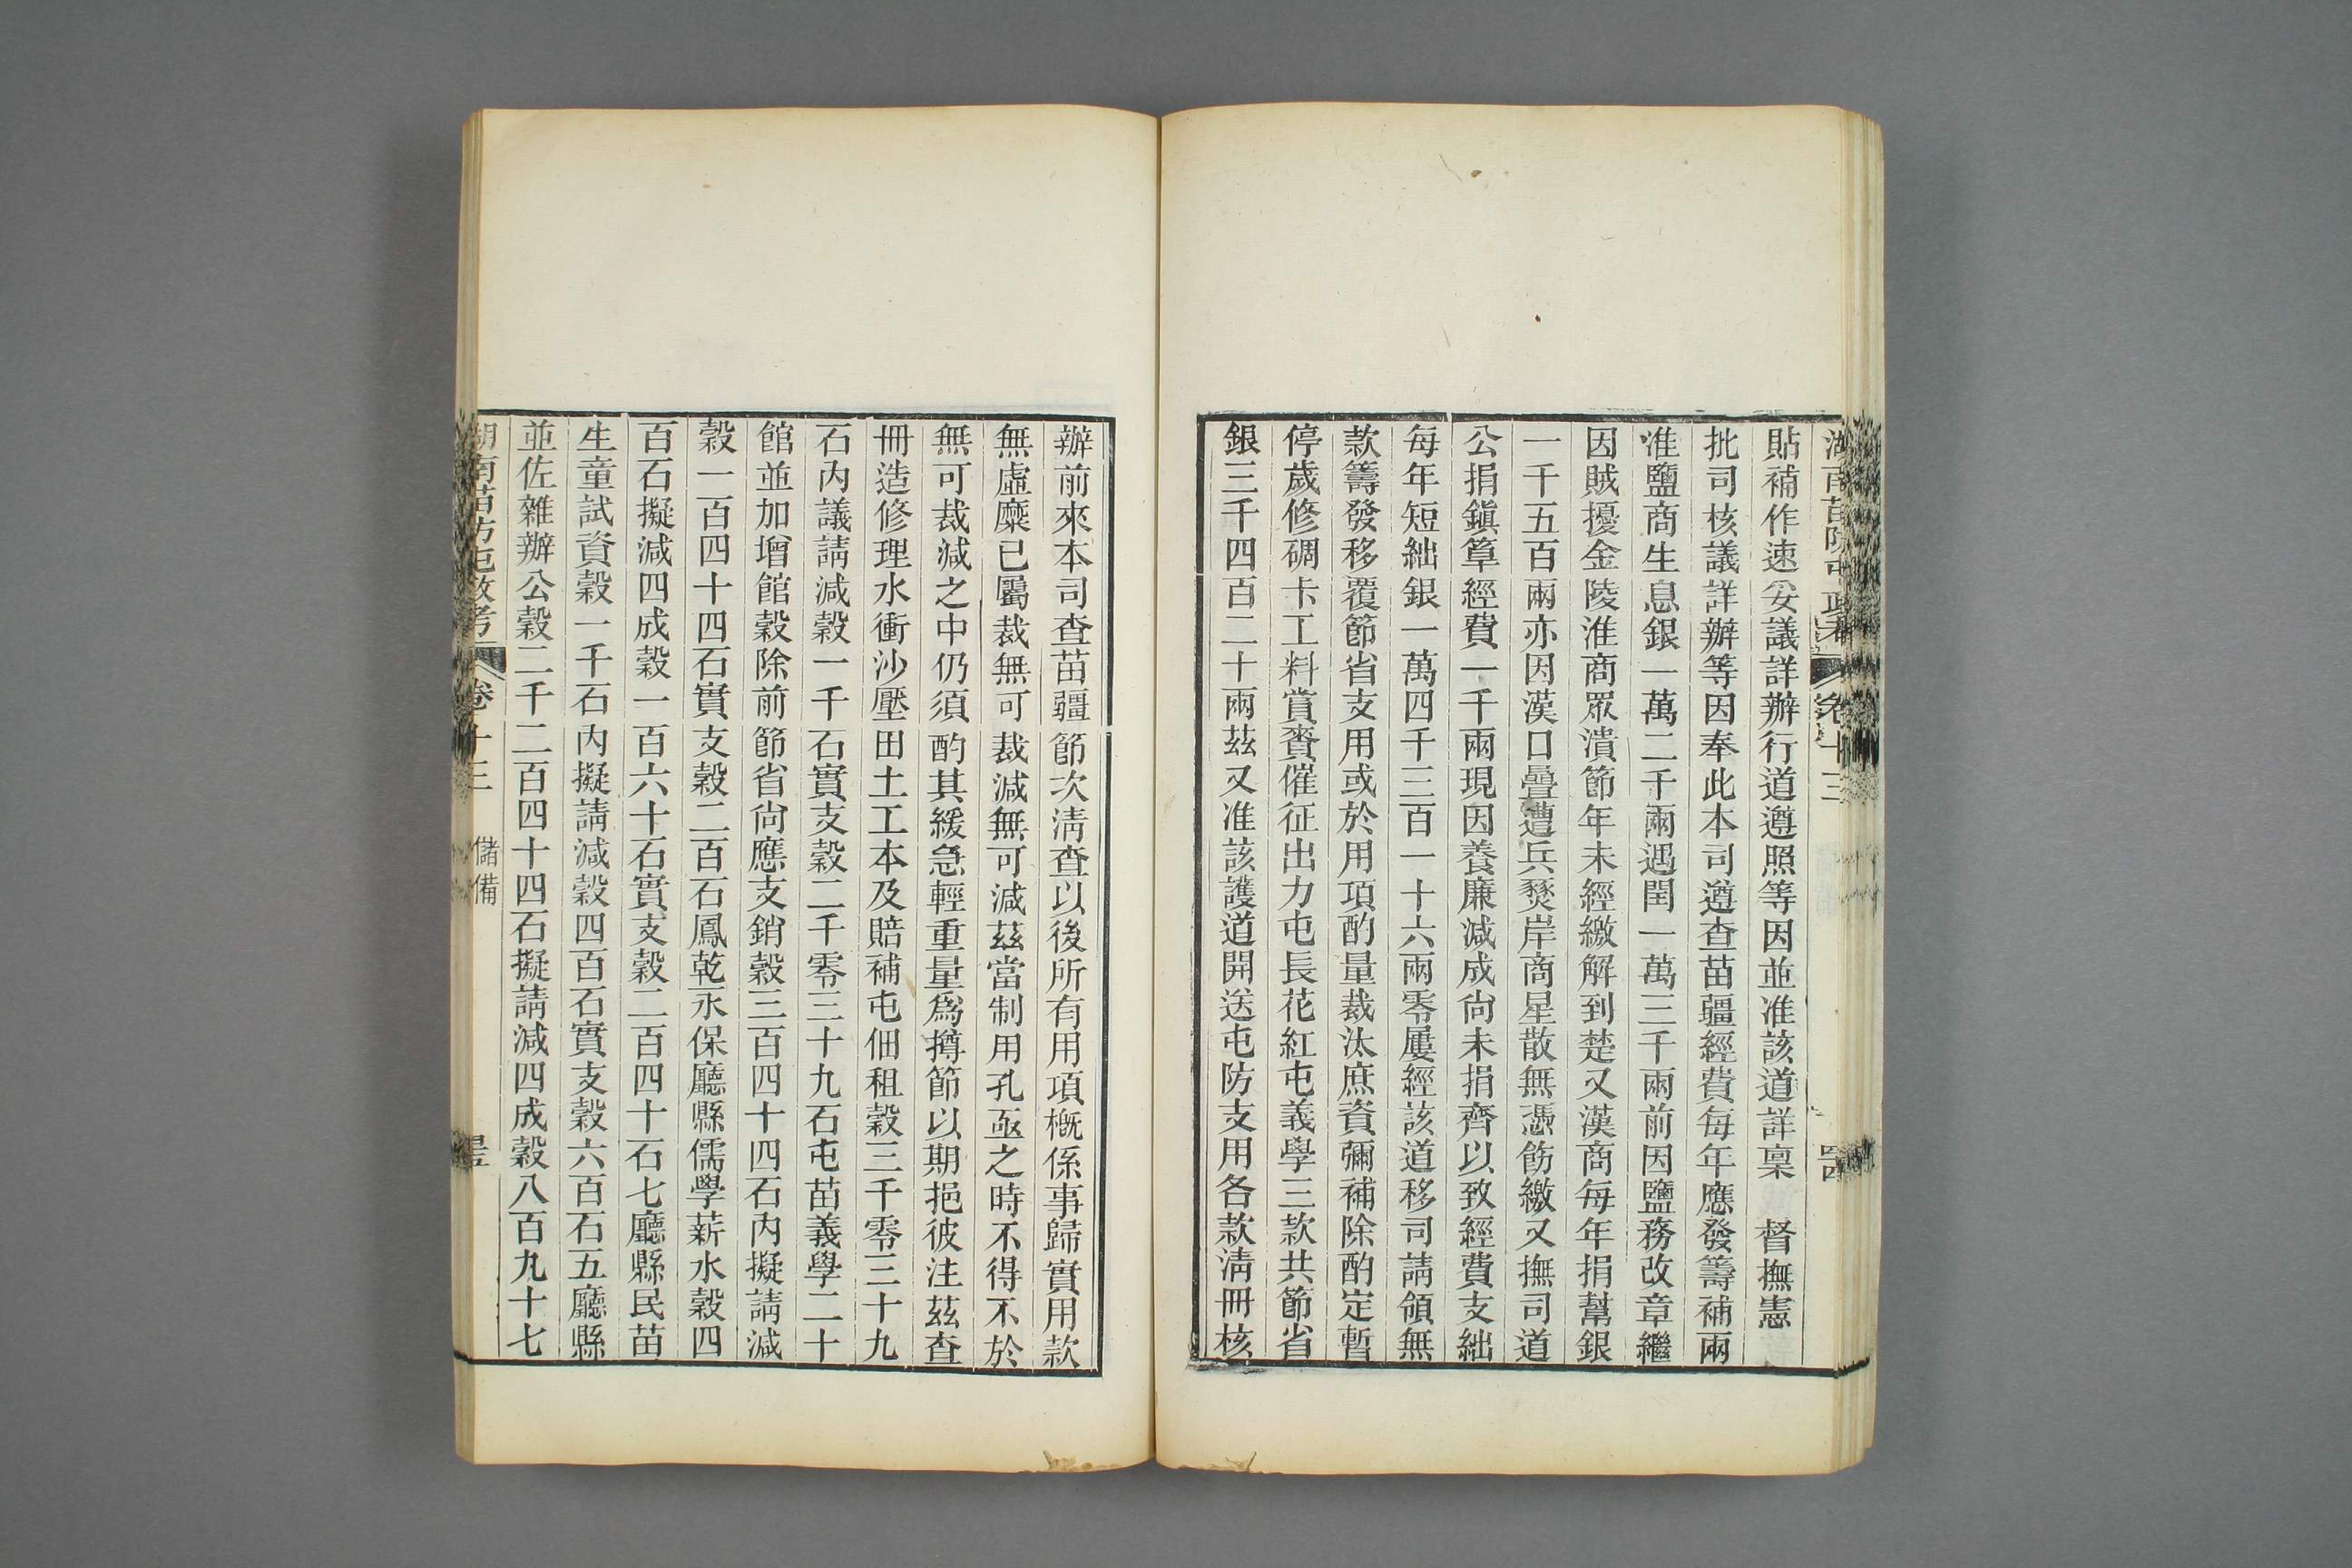 貼補作速妥議詳辦行道遵照等因並准該道詳稟　督撫憲
批司核議詳辦等因奉此本司遵查苗疆經費每年應發籌補兩
淮鹽商生息銀一萬二千兩遇閏一萬三千兩前因鹽務改章繼
因賊擾金陵淮商眾潰節年未經繳解到楚又漢商每年捐幫銀
一千五百兩亦因漢口疊遭兵燹岸商星散無憑飭繳又撫司道
公捐鎭筸經費一千兩現因養廉減成尙未捐齊以致經費支絀
每年短絀銀一萬四千三百一十六兩零屢經該道移司請領無
款籌發移覆節省支用或於用項酌量裁汰庶資彌補除酌定暫
停歲修碉卡工料賞賚催征出力屯長花紅屯義學三款共節省
銀三千四百二十兩茲又准該護道開送屯防支用各款淸冊核
辦前來本司查苗疆節次淸查以後所有用項槪係事歸實用款
無虛糜已屬裁無可裁減無可減茲當制用孔亟之時不得不於
無可裁減之中仍須酌其緩急輕重量爲撙節以期挹彼注茲查
冊造修理水衝沙壓田土工本及賠補屯佃租穀三千零三十九
石內議請減穀一千石實支穀二千零三十九石屯苗義學二十
館並加增館穀除前節省尙應支銷穀三百四十四石內擬請減
穀一百四十四石實支穀二百石鳳乾永保廳縣儒學薪水穀四
百石擬減四成穀一百六十石實支穀二百四十石七廳縣民苗
生童試資穀一千石內擬請減穀四百石實支穀六百石五廳縣
並佐雜辦公穀二千二百四十四石擬請減四成穀八百九十七
湖南苗防屯政考　卷十三　儲備